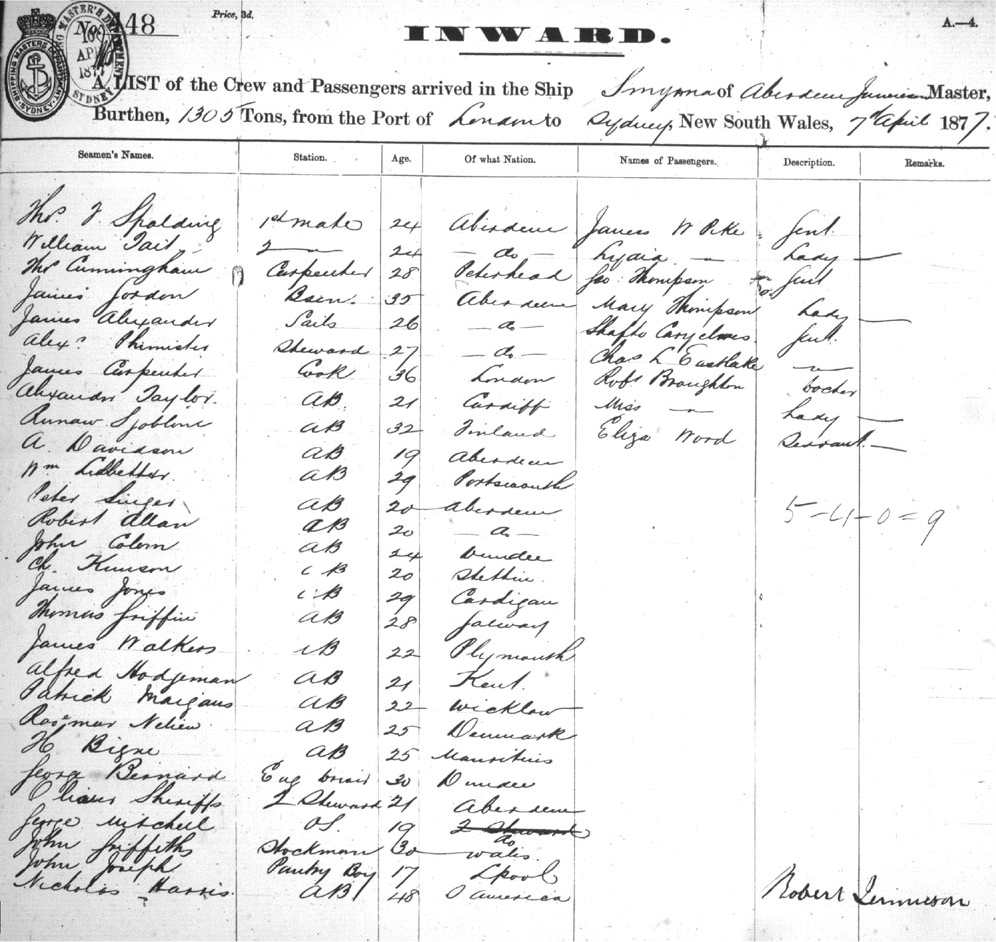 448
Price, 3d.
A.—4.
SHIPPING MASTER'S DEPARTMENT SYDNEY
APL
1877
INWARD.
A LIST of the Crew and Passengers arrived in the Ship Smyrna of Aberdeen Master,
Burthen, 1305 Tons, from the Port of London to Sydney, New South Wales, 7th April 1877.
Seamen's Names. Station. Age. Of what Nation. Names of Passengers. Description. Remarks.
Thos. F Spalding 1st mate 24 Aberdeen James W Pike Gent
William Tait 2 — 24 — do — Lydia — Lady —
Thos Cunningham Carpenter 28 Peterhead Geo. Thompson Gent
James Gordon Bsen. 35 Aberdeen Mary Thompson Lady —
James Alexander Sails 26 — do — Shafto Gent.
Alexr. Phimister Steward 27 — do — Chas L Eastlake — " —
James Carpenter Cook 36 London Robt Broughton
Alexander Taylor. AB 21 Cardiff Miss — " — Lady —
AB 32 Finland Eliza Word Servant —
A. Davidson AB 19 Aberdeen
Wm Ledbetter. AB 29 Portsmouth
Peter Singer AB 20 Aberdeen
5-4-0=9
Robert Allan AB 20 — do —
John Colem AB 24 Dundee
Ch. AB 20 Stettin
James Jones AB 29 Cardigan
Thomas Griffin AB 28 Galway
James Walkers AB 22 Plymouth
Alfred Hodgeman AB 21 Kent.
Patrick AB 22 Wicklow
AB 25 Denmark
H Bigne AB 25 Mauritius
George Bernard Eng 30 Dundee
Oliver Sheriffs 2 Steward 21 Aberdeen
George Mitchell OS. 19 2 Steward do
John Griffiths Stockman 30 Wales.
John Joseph Pantry Boy 17 Lpool
Nicholas Harris. AB 48 S America
Robert